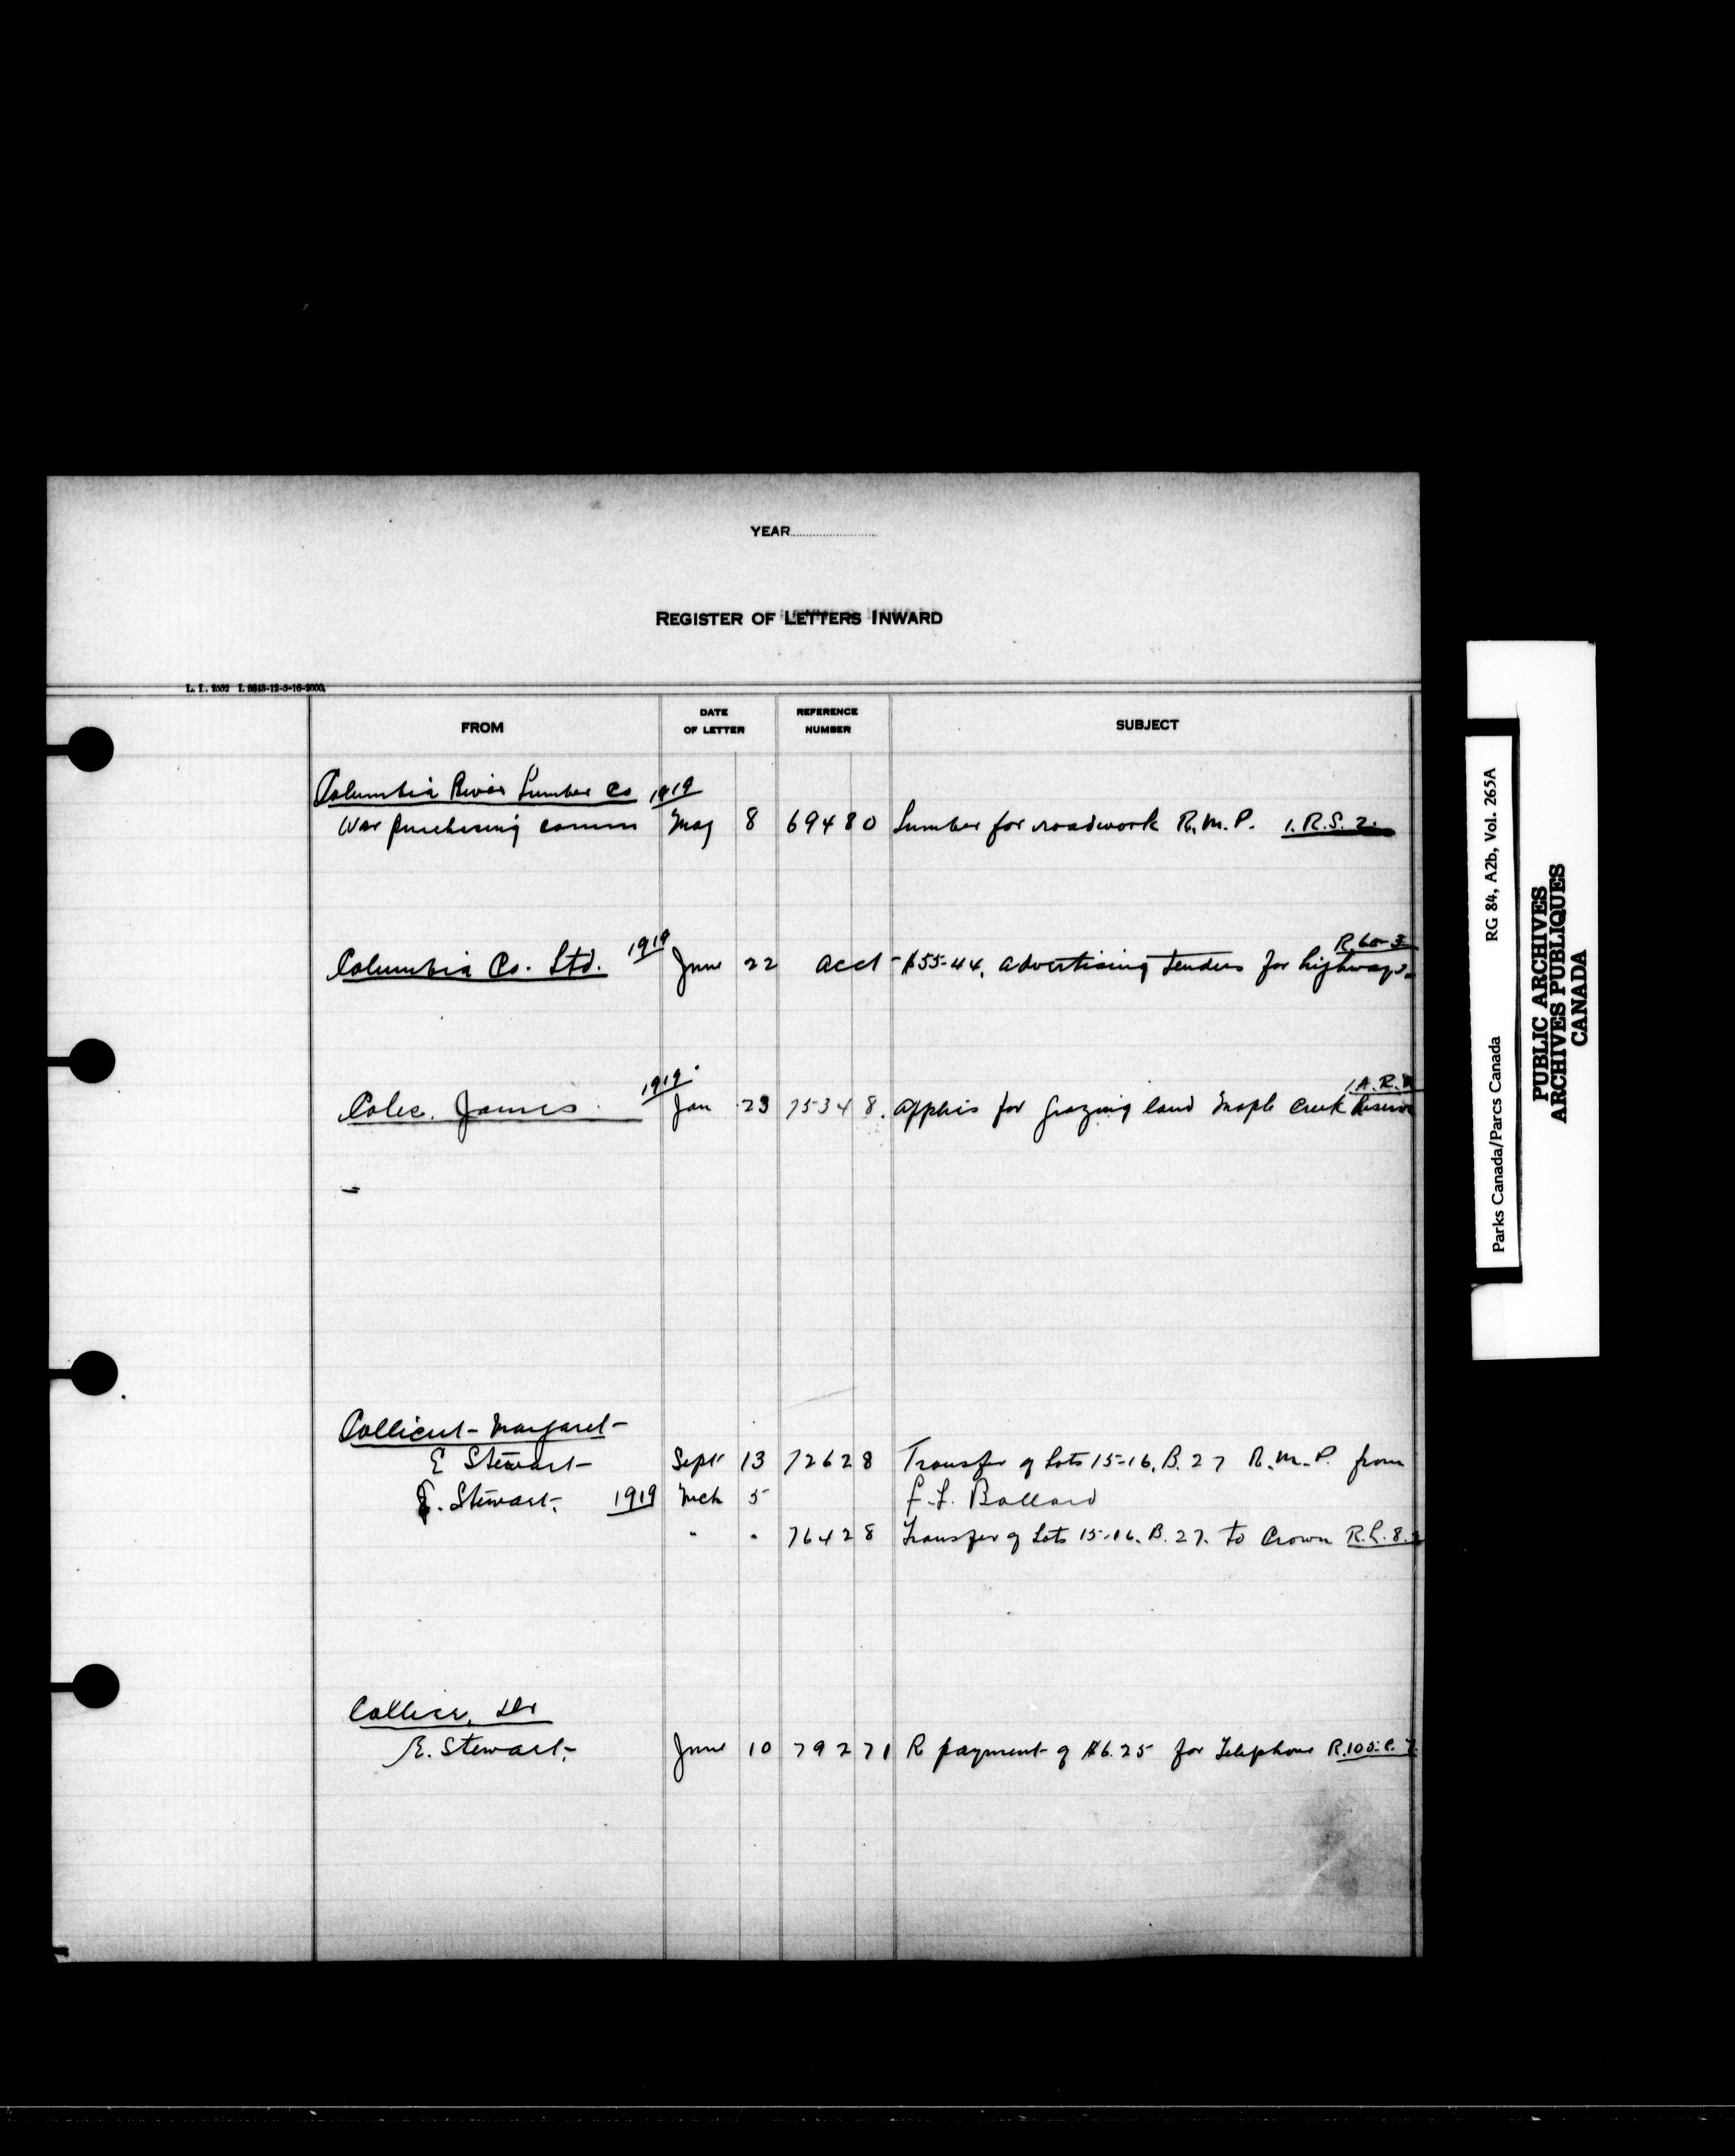 YEAR
REGISTER OF LETTERS INWARD
L. I. 2552 I. 9843-12-5-16-2000.
FROM DATE OF LETTER REFERENCE NUMBER SUBJECT
Columbia River Lumber Co 1919
War purchasing comm May 8 69480 Lumber for roadwork R.M.P. 1.R.S.2.
R.60-3
Columbia Co. Ltd. 1919 June 22 acct - $55-44, advertising tenders for highways
1.A.R.
James 1919 Jan 23 75348. applies for grazing land Maple Creek Reserve
Collicut - Margaret -
E Stewart - Sept 13 72628 Transfer of Lots 15-16, B. 27 R.M.P. from
E. Stewart - 1919 Mch 5 Ballard
" " 76428 Transfer of Lots 15-16, B. 27. to Crown R.L.8.
Dr
E. Stewart - June 10 79271 R payment of $6.25 for Telephone R.105.C.
RG 84, A2b, Vol. 265A
Parks Canada/Parcs Canada
PUBLIC ARCHIVES
ARCHIVES PUBLIQUES
CANADA